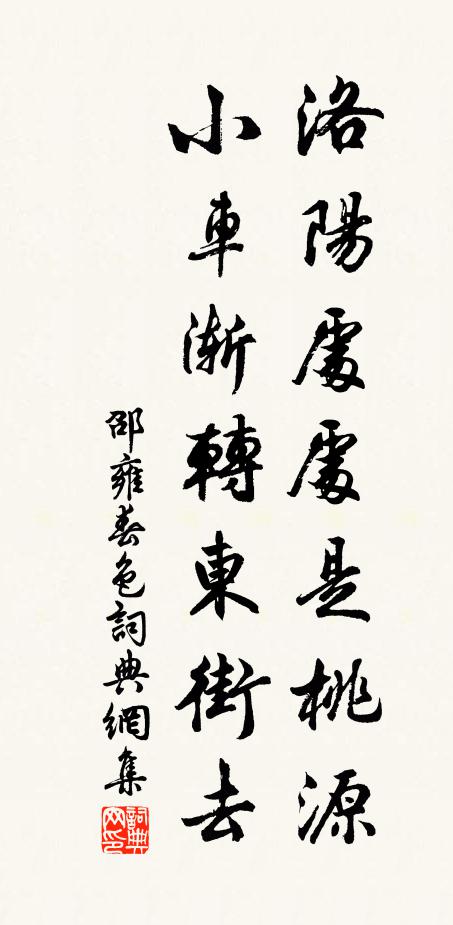 洛陽處處是桃源
小車漸轉東街去
邵雍春色詞典網集
詞典网印